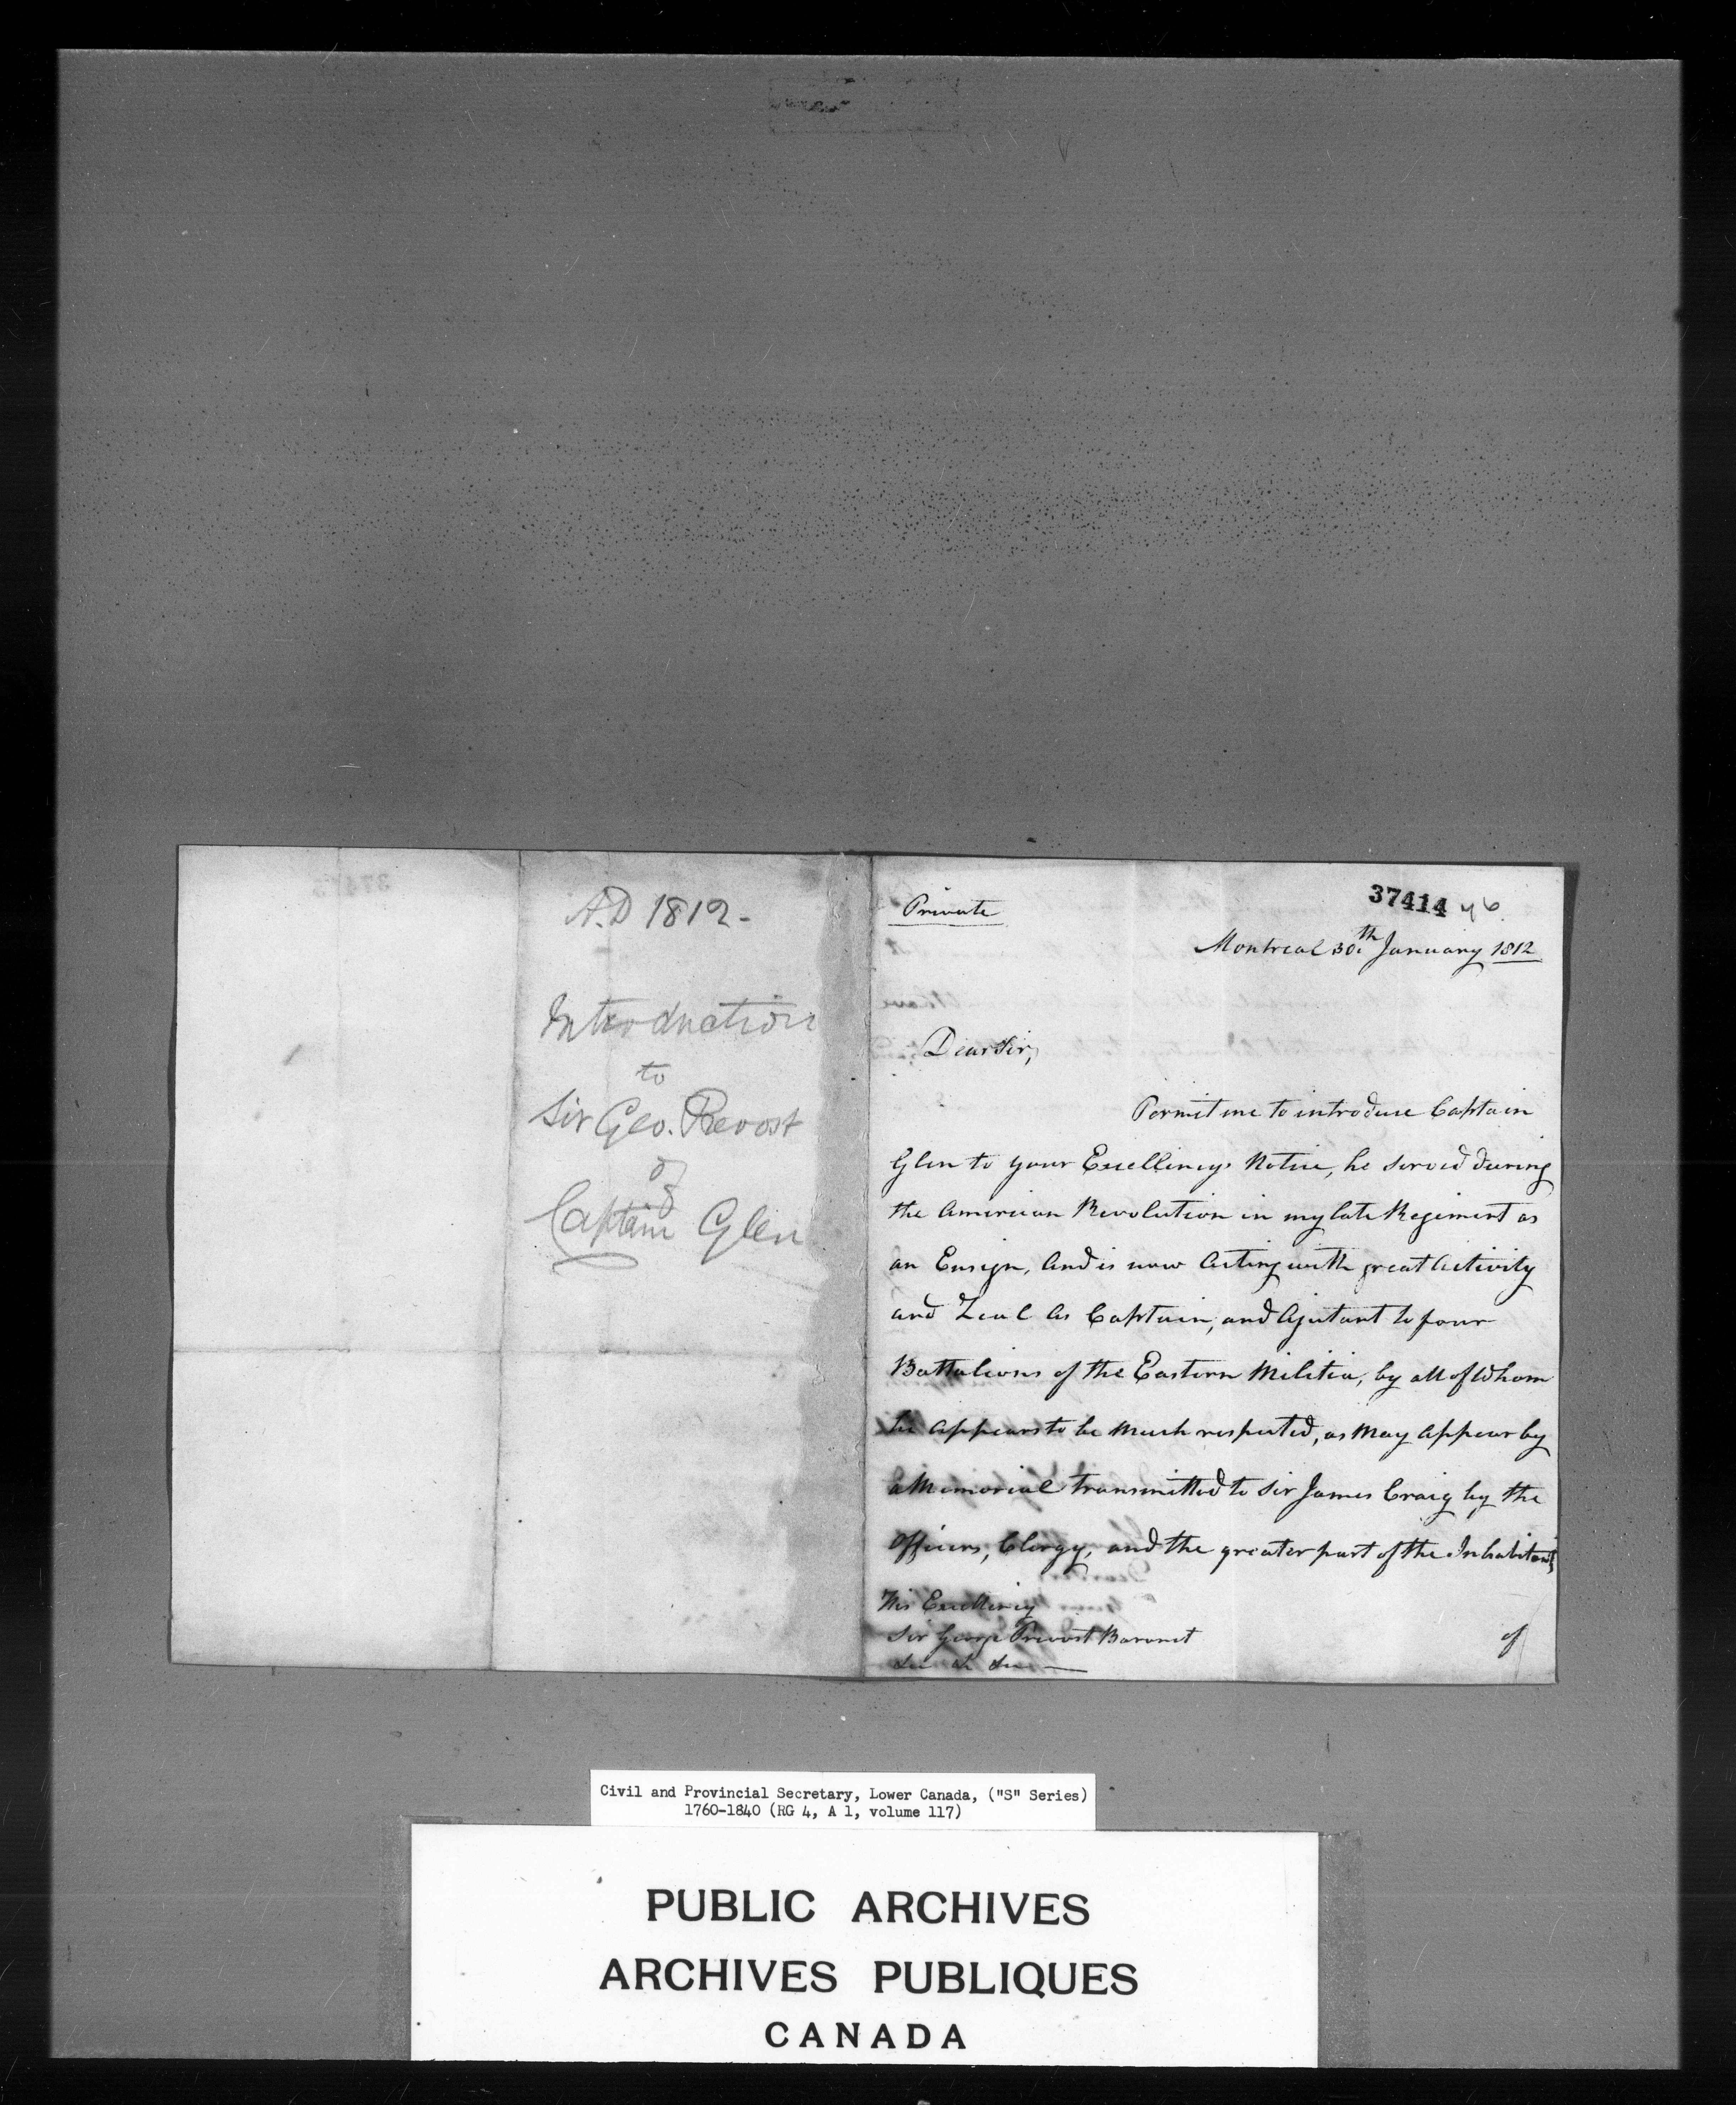 A.D 1812 -
Introduction
to
Sir Geo. Prevost
of
Captain Glen
Private
37414
46.
Montreal 30th January 1812
Dear Sir,
Permit me to introduce Captain
Glen to your Excellencys Notice, he served during
the American Revolution in my late Regiment as
an Ensign, and is now Acting with great Activity
and Zeal as Captain, and Ajutant to four
Battalions of the Eastern Militia, by all of Whom
he appears to be Much respected, as May appear by
a Memorial transmitted to Sir James Craig by the
Officers, Clergy, and the greater part of the Inhabitants
His Excellency
Sir George Prevost Baronet
&c &c &c
of
Civil and Provincial Secretary, Lower Canada, ("S" Series)
1760-1840 (RG 4, A 1, volume 117)
PUBLIC ARCHIVES
ARCHIVES PUBLIQUES
CANADA